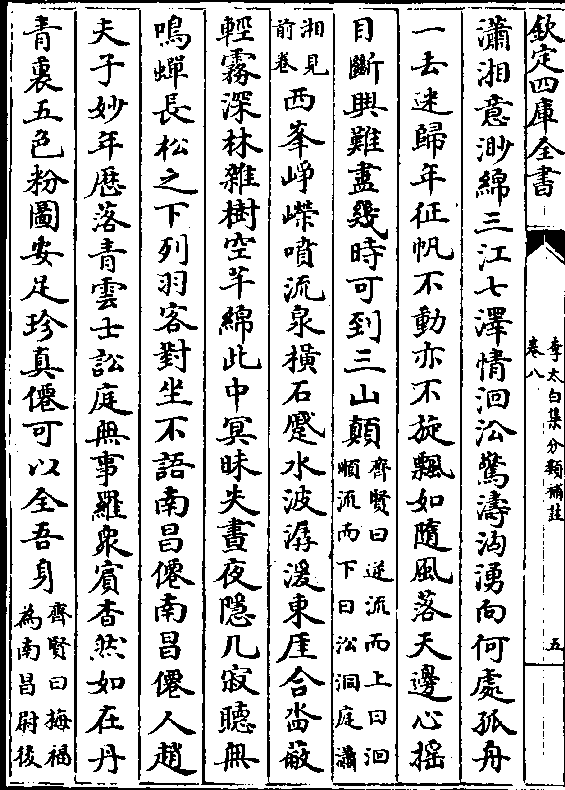 欽定四庫全書
李太白集分類補註
卷八
五
瀟湘意渺綿三江七澤情洄沿驚濤洶湧向何處孤舟
一去迷歸年征帆不動亦不旋飄如隨風落天邊心揺
目斷興難盡幾時可到三山顛
齊賢曰逆流而上曰洄
順流而下曰沿洞庭瀟
湘見
前卷
西峯崢嶸噴流泉横石蹙水波潺湲東厓合沓蔽
輕霧深林雜樹空芊綿此中冥昧失晝夜隱几寂聽無
鳴蟬長松之下列羽客對坐不語南昌僊南昌僊人趙
夫子妙年歴落青雲士訟庭無事羅衆賓杳然如在丹
青裏五色粉圖安足珍真僊可以全吾身
齊賢曰梅福
為南昌尉後